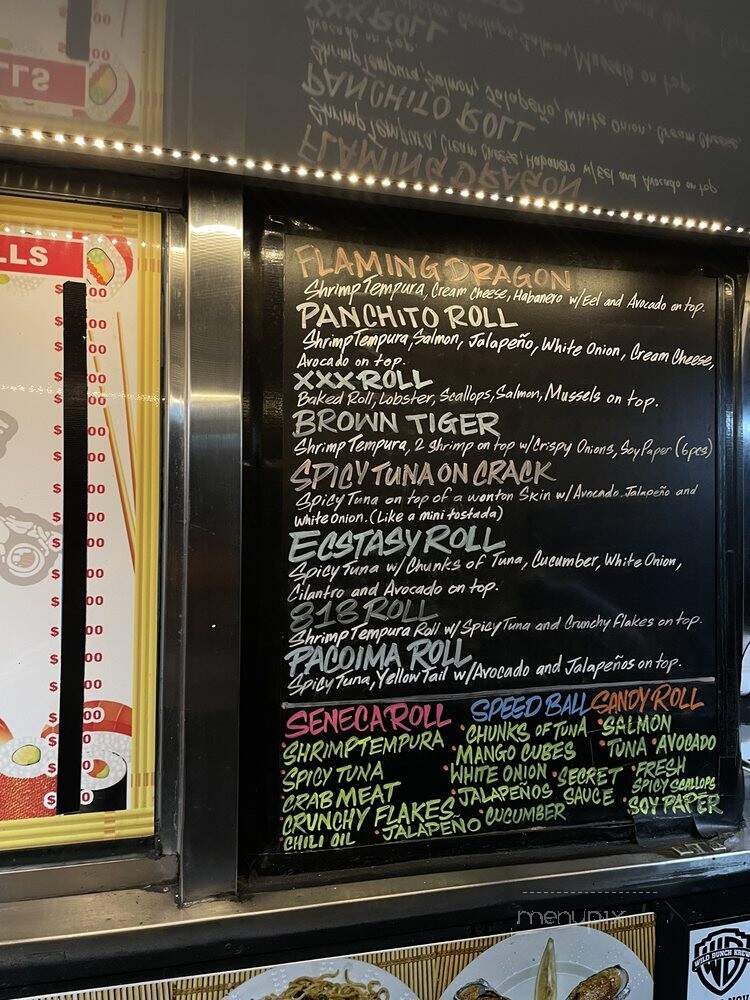 LLS
FLAMING DRAGON
Shrimp Tempura, Cream Cheese, Habanero w/Eel and Avocado on top.
PANCHITO ROLL
Shrimp Tempura, Salmon, Jalapeño, White Onion, Cream Cheese,
Avocado on top.
XXX ROLL
Baked Roll, Lobster, Scallops, Salmon, Mussels on top.
BROWN TIGER
Shrimp Tempura, 2 shrimp on top w/Crispy Onions, Soy Paper (6pcs)
SPICY TUNA ON CRACK
Spicy Tuna on top of a wonton Skin w/Avocado, Jalapeño and
White Onion. (Like a mini tostada)
ECSTASY ROLL
Spicy Tuna w/ Chunks of Tuna, Cucumber, White Onion,
Cilantro and Avocado on top.
818 ROLL
Shrimp Tempura Roll w/ Spicy Tuna and Crunchy Flakes on top.
PACOIMA ROLL
Spicy Tuna, Yellow Tail w/Avocado and Jalapeños on top.
SENECA ROLL
·SHRIMP TEMPURA
·SPICY TUNA
·CRAB MEAT
·CRUNCHY FLAKES
·CHILI OIL ·JALAPEÑO
SPEED BALL
·CHUNKS OF TUNA
·MANGO CUBES
·WHITE ONION ·SECRET
·JALAPEÑOS SAUCE
·CUCUMBER
SANDY ROLL
·SALMON
·TUNA ·AVOCADO
·FRESH
SPICY SCALLOPS
·SOY PAPER
menupix
WB
WILD BUNCH KREW